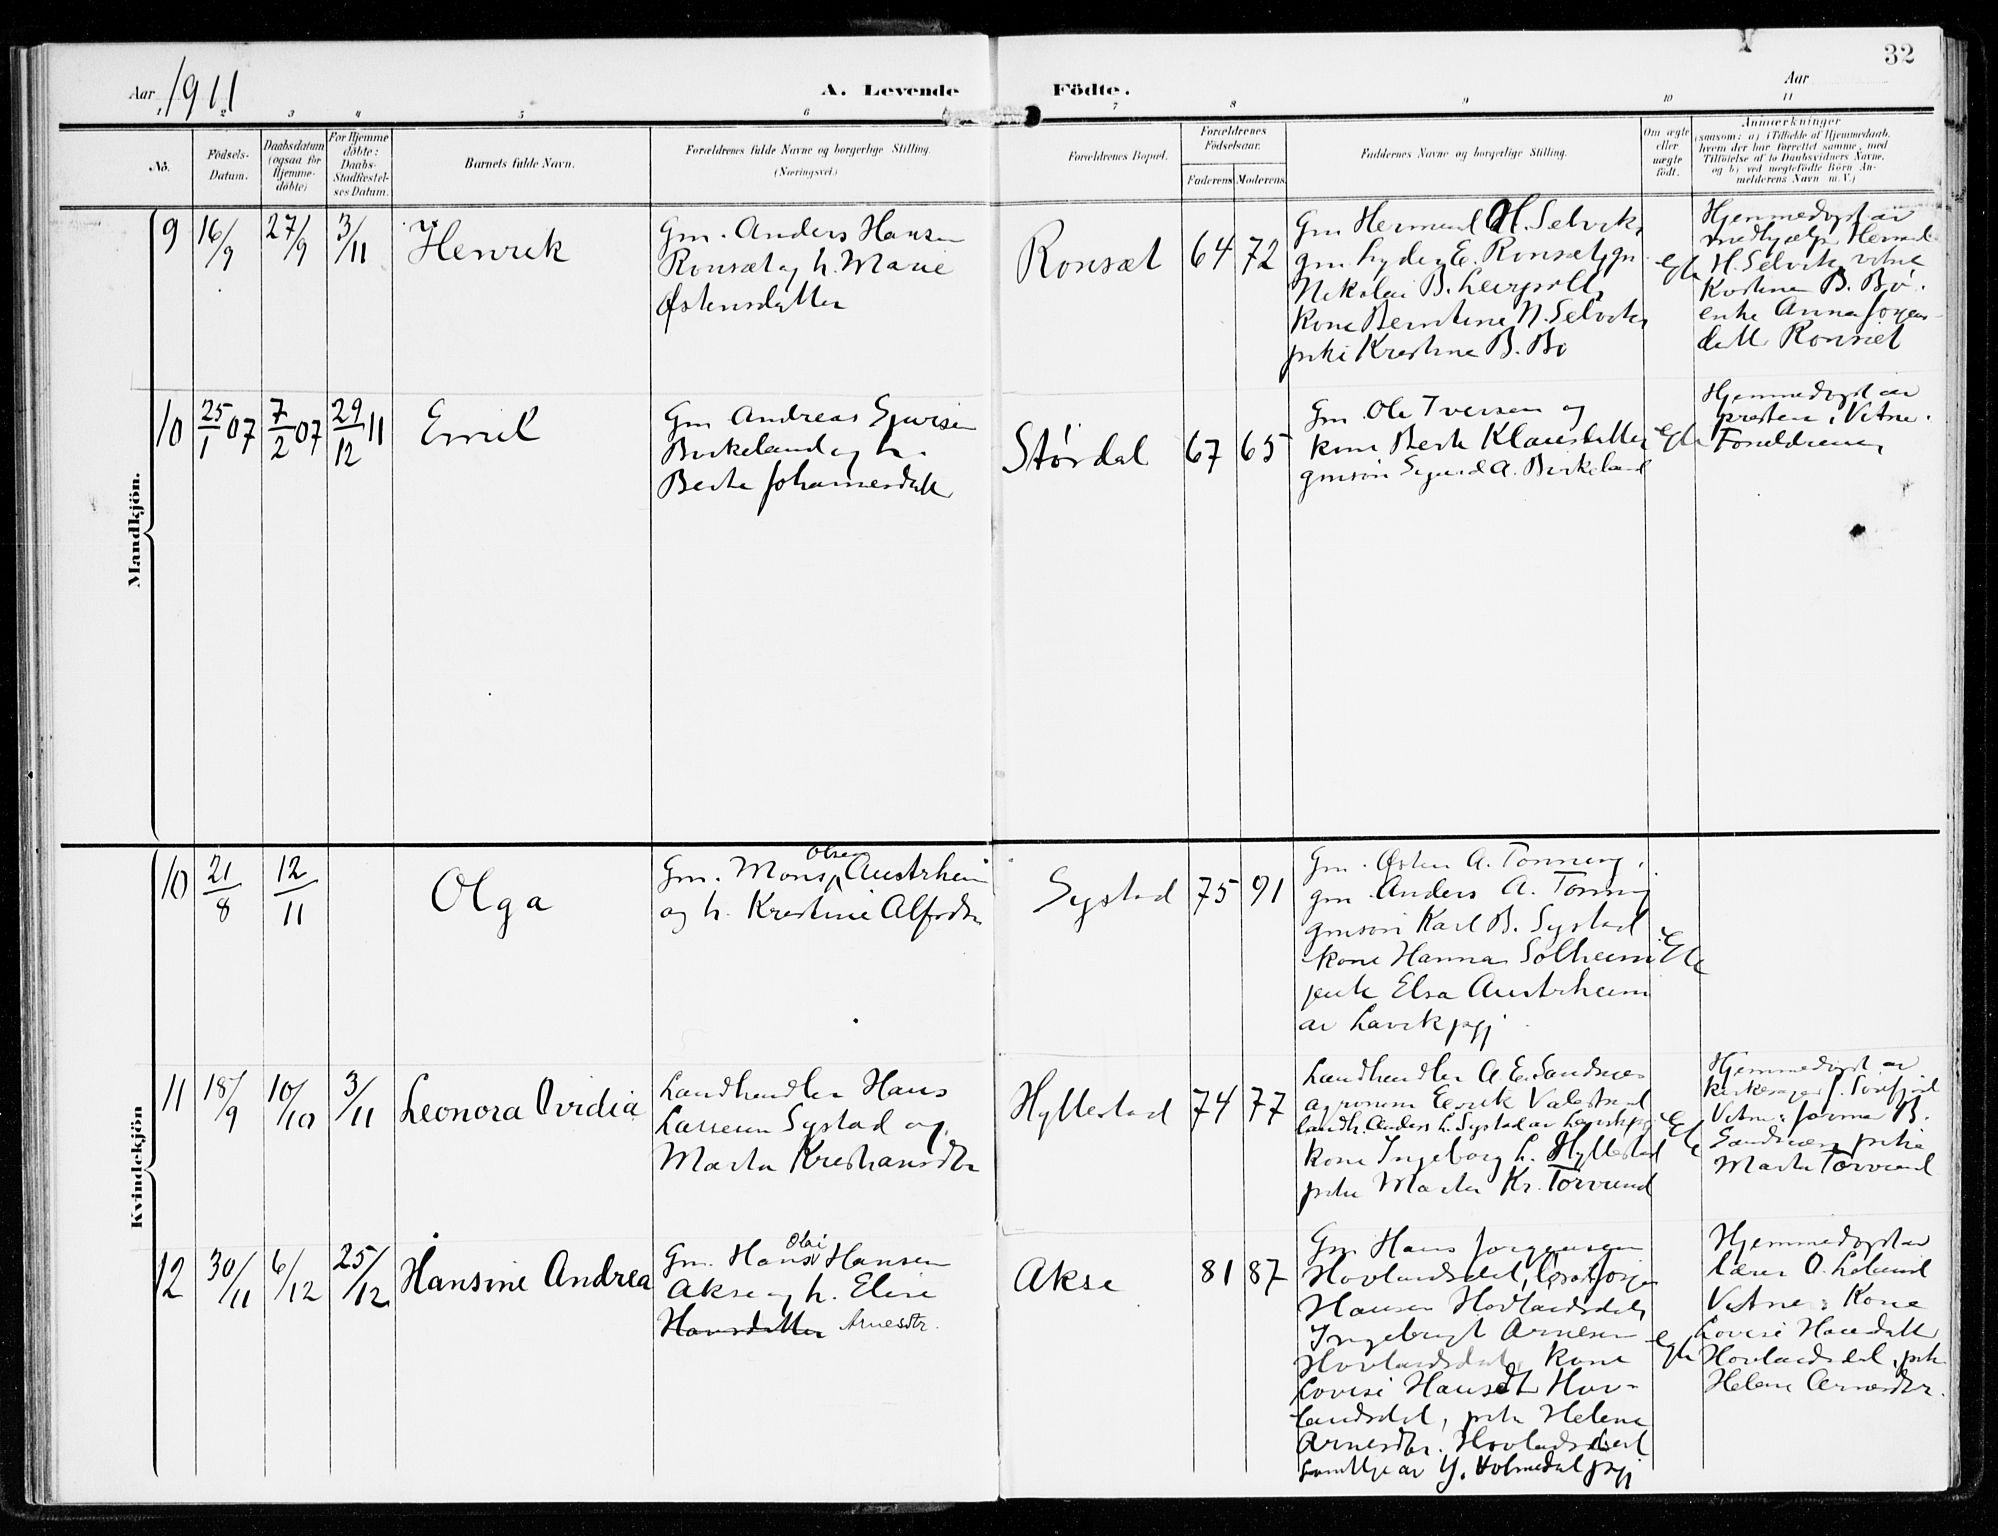 32
Aar 1911
A. Levende Födte.
Aar
1 2 3 4 5 6 7 8 9 10 11
No.
Födsels-
Datum.
Daabsdatum
(ogsaa for
Hjemme-
döbte)
For Hjemme
döbte:
Daabs-
Stadfæstel-
ses Datum.
Barnets fulde Navn.
Forældrenes fulde Navne og borgerlige Stilling.
(Næringsvei.)
Forældrenes Bopæl.
Forældrenes
Födselsaar.
Faderens Moderens
Faddernes Navne og borgerlige Stilling.
Om ægte
eller
uægte
födt.
Anmærkninger
(saasom: a) i Tilfælde af Hjemmedaab,
hvem der har forrettet samme, med
Tilföielse af to Daabsvidners Navne,
og b) ved uægtefödte Börn An-
melderens Navn m. V.)
Mandkjön.
9 16/9 27/9 3/11
Henrik
Gm. Anders Hansen
Ronsæt og h. Marie
Østensdatter
Ronsæt
64 72
Gm Hermund H. Selvik,
gm. Lyder E. Ronsæt, gm
Nikolai B. Leirpoll,
kone Berntine N. Selvik,
pike Kristine B. Bø
egte
Hjemmedøpt av
Hermund
H. Selvik, vitne
Kristine B. Bø.
enke Anna Jorgens-
datt Ronset
10 25/1 07 7/2 07 29/12 11
Emil
Gm Andreas
Birkeland og h.
Berte Johannesdatt
Størdal
67 65
Gm. Ole Iversen og
kone Berte Klausdatter
gmsøn Sigurd A. Birkeland
egte
Hjemmedøpt av
presten, Vitne:
Forældrene
Kvindekjön
10 21/8 12/11
Olga
Gm. Mons Olsen Austrheim
og h. Kristine Alfredsd
Systad
75 91
Gm. Østen A. Tonning,
gm. Anders A. Tonning
gmsøn Karl B. Systad
kone Hanna Solheim
pike Elsa Austrheim
av Lavik pgj.
Egte
11 18/9 10/10 3/11
Leonora Ovidia
Landhandler Hans
Larsen Systad og
Marta Kristiansdtr
Hyllestad
74 77
Landhandler A. E. Sandnes
agronom
landh. Anders L. Systad av Lavik pgj
kone Ingeborg L. Hyllestad
pike Marta Kr. Torvund
Egte
Hjemmedøpt av
kirkesanger J. Sørfjord
Vitne: B.
Sandnes, pike
Marta Torvund
12 30/11 6/12 25/12
Hansine Andrea
Gm. Hans Olai Hansen
Akse og h. Elise
Hansdatter Arnesdtr.
Akse
81 87
Gm Hans Jorgensen
Hovlandsdal,
Hansen Hovlandsdal,
Ingebrigt Arnesen
Hovlandsdal, kone
Lovise Hansdt Hov-
landsdal, pike Helene
Arnesdtr. Hovlandsdal
samtlige av Y. Holmedal pgj
egte
Hjemmedøpt av
lærer O. Løland
Vitne: Kone
Lovise Hansdatt
Hovlandsdal, pike
Helene Arnesdtr.